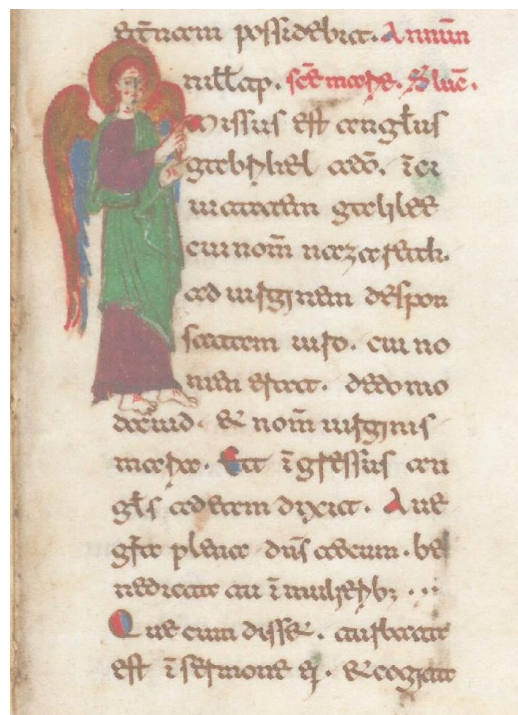 et̄nam possidebit. Annun
In ill̄ tp̄. sc̄e marie. S. luc̄.
Missus est angl̄us
gabrihel a dō. ī ci
uitatem galilee
cui nom̄ nazareth.
ad uirginem despon
satam uiro. cui no
men erat. de domo
dauid. & nom̄ uirginis
maria. Et īgressus an
gl̄s ad eam dixit. Aue
gr̄a plena dn̄s tecum. be
nedicta tu ī mulierib; ...
Que cum diss&. turbata
est ī sermone ei'. & cogita